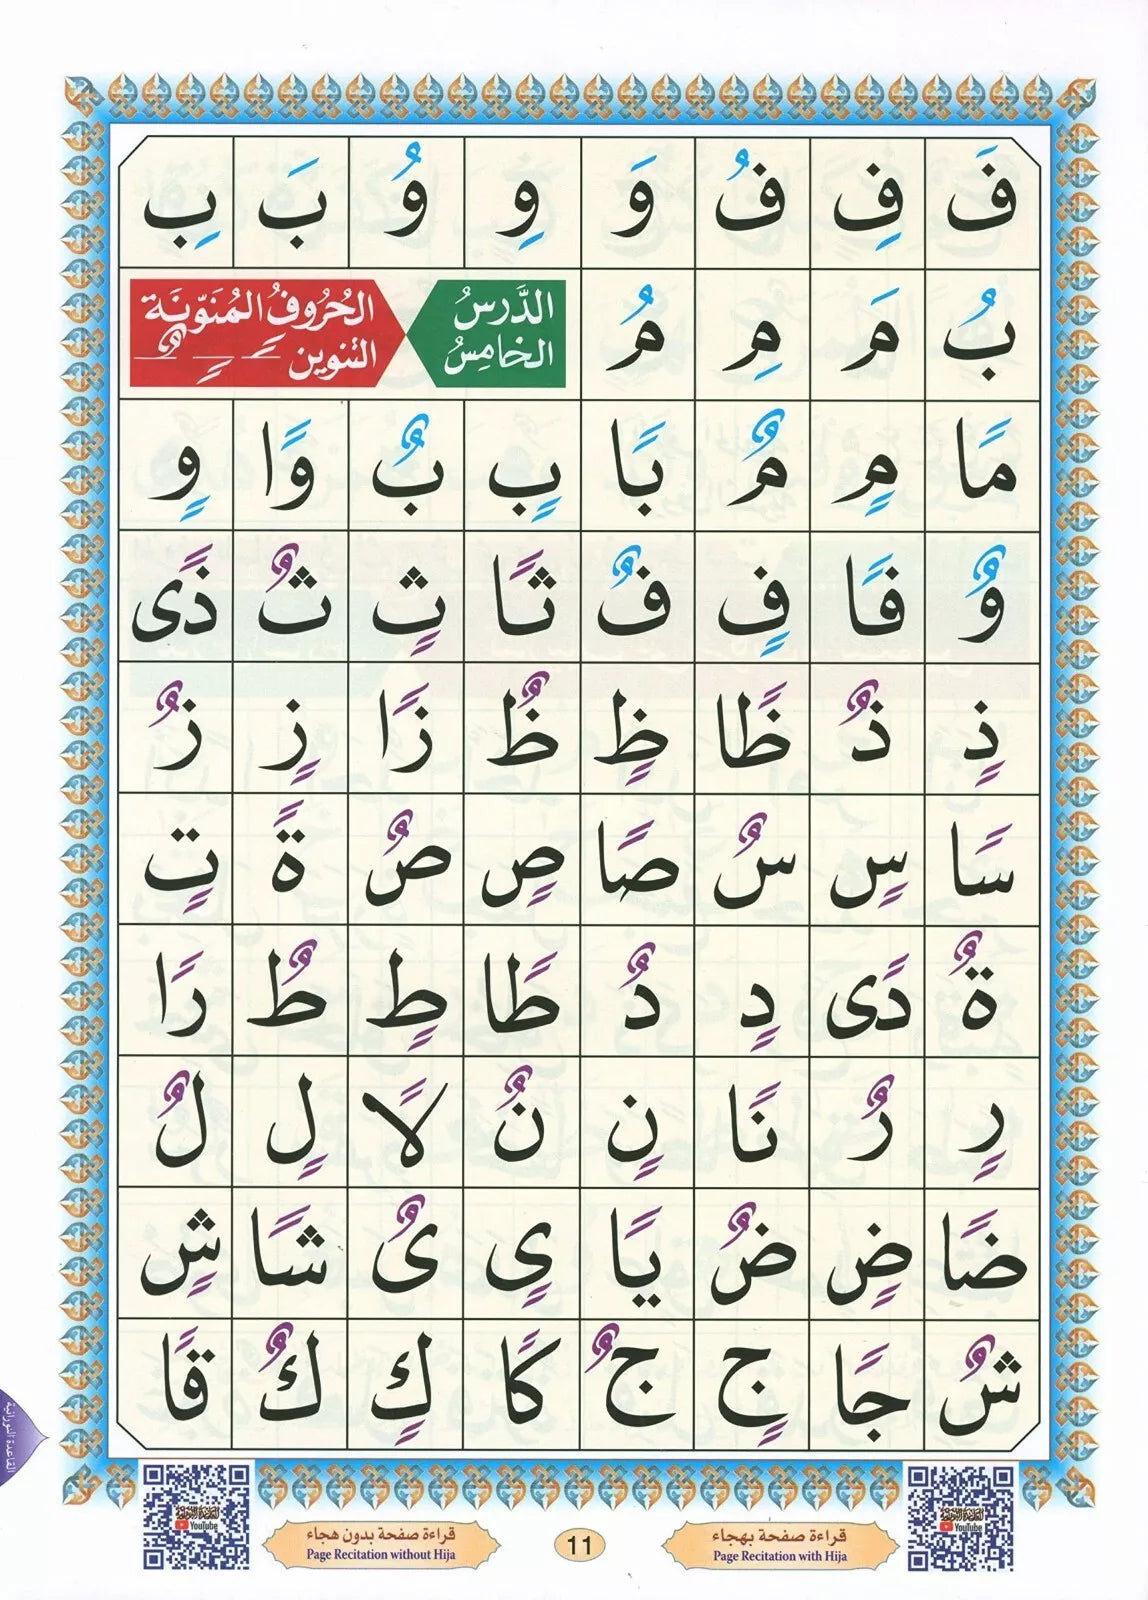 فَ فِ فُ وَ وِ وُ بَ بِ
بُ مَ مِ مُ الدَّرسُ الخامِسُ الحُروفُ المُنَوَّنَة التنوين ـً ـٍ ـٌ
مًا مٍ مٌ بًا بٍ بٌ وًا وٍ
وٌ فًا فٍ فٌ ثًا ثٍ ثٌ ذًى
ذٍ ذٌ ظًا ظٍ ظٌ زًا زٍ زٌ
سًا سٍ سٌ صًا صٍ صٌ ةً تٍ
ةٌ دًى دٍ دٌ طًا طٍ طٌ رًا
رٍ رٌ نًا نٍ نٌ لًا لٍ لٌ
ضًا ضٍ ضٌ يًا ىٍ ىٌ شًا شٍ
شٌ جًا جٍ جٌ كًا كٍ كٌ قًا
القاعدة النورانية
القاعدة النورانية YouTube
قراءة صفحة بهجاء
Page Recitation with Hija
11
قراءة صفحة بدون هجاء
Page Recitation without Hija
القاعدة النورانية YouTube